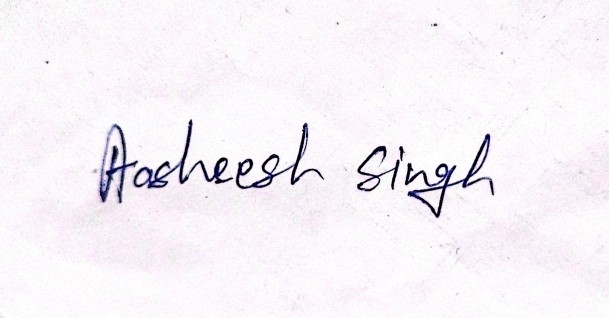 Aasheesh Singh